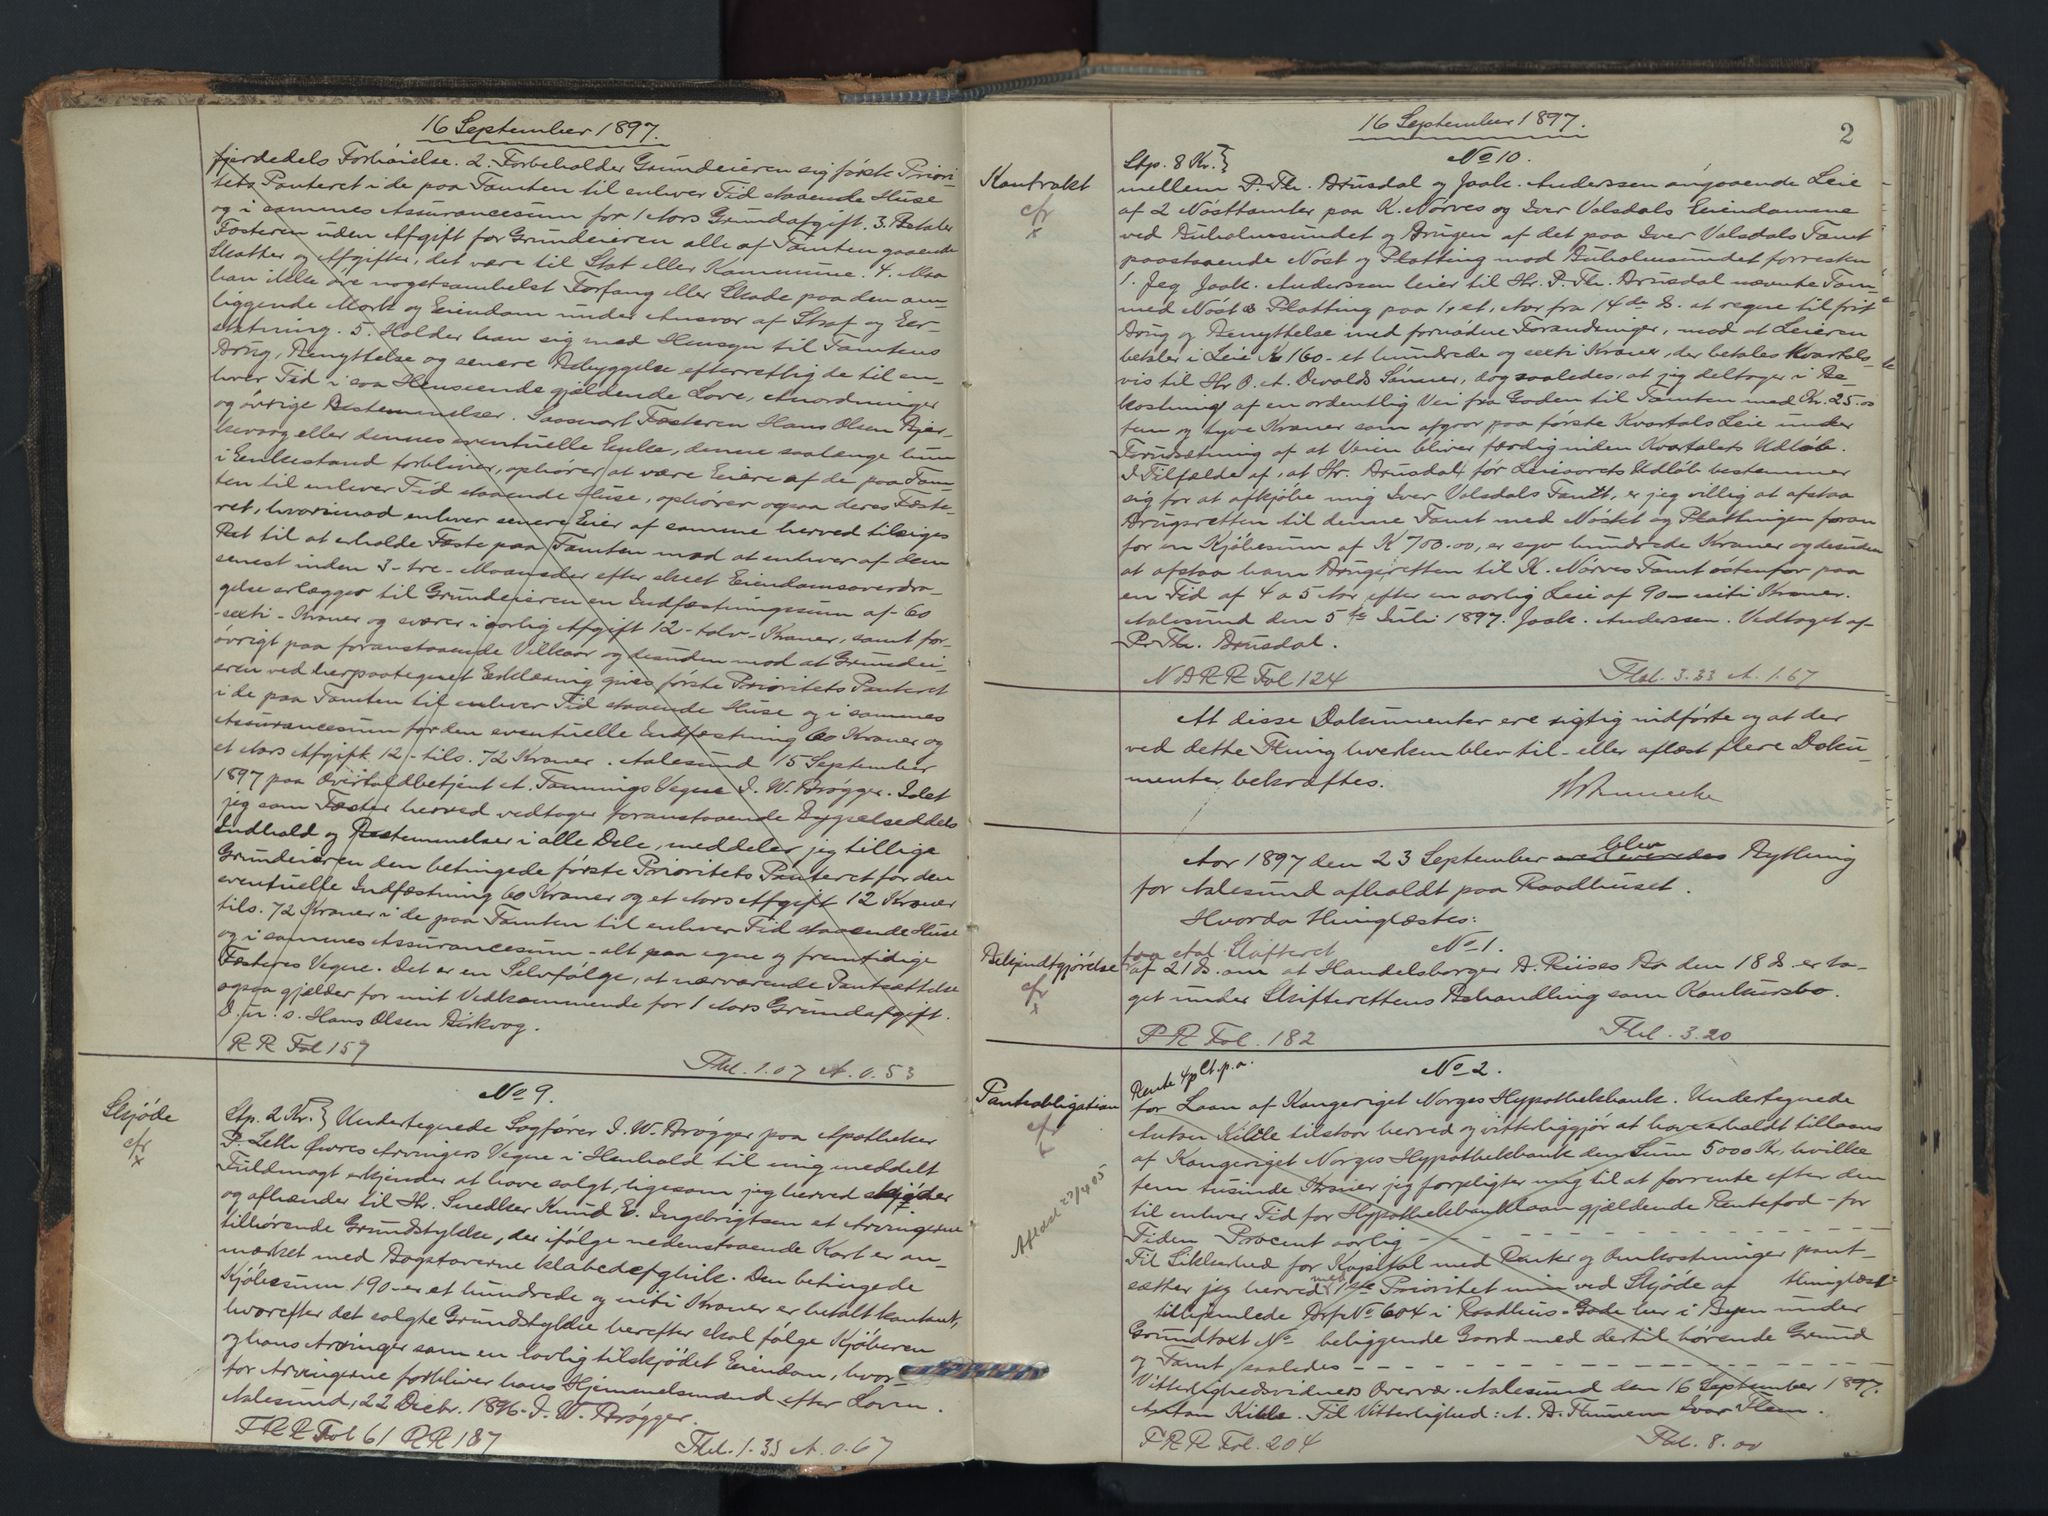 16 September 1897.
fjerdedels Forhøielse. 2. Forbeholder Grundeieren sig første Priori-
tets Panteret i de paa Tomten til enhver Tid staaende Huse
og i sammes Assurancesum for 1 Aars Grundafgift. 3. Betaler
Fæsteren uden Afgift for Grundeieren alle af Tomten gaaende
Skatter og Afgifter, det være til Stat eller Kommune. 4. Maa
han ikke øve nogetsomhelst Forfang eller Skade paa den om-
liggende Mark og Eiendom under Ansvar af Straf og Er-
statning. 5. Holder han sig med Hensyn til Tomtens
Brug, Benyttelse og senere Bebyggelse efterrettlig de til en-
hver Tid i saa Henseende gjældende Love, Anordninger
og øvrige Bestemmelser. Saasnart Fæsteren Hans Olsen Bjer-
kevaag eller dennes eventuelle Enke, denne saalænge hun
i Enkestand forbliver, ophører at være Eiere af de paa Tom-
ten til enhver Tid staaende Huse, ophører ogsaa deres Fæste-
ret, hvorimod enhver senere Eier af samme herved tilsiges
Ret til at erholde Fæste paa Tomten mod at enhver af dem
senest inden 3 - tre - Maaneder efter skeet Eiendomsoverdra-
gelse erlægger til Grundeieren en Indfæstningssum af 60
- sexti - Kroner og svarer i aarlig Afgift 12 - tolv - Kroner, samt for-
øvrigt paa foranstaaende Vilkaar og desuden mod at Grundei-
eren ved herpaategnet Erklæring gives første Prioritets Panteret
i de paa Tomten til enhver Tid staaende Huse og i sammes
Assurancesum for den eventuelle Indfæstning 60 Kroner og
et Aars Afgift 12 - tils. 72 Kroner. Aalesund 15 September
1897 paa Overtoldbetjent A. Tonnings Vegne J. W. Brøgger. Idet
jeg som Fæster herved vedtager foranstaaende Bygselseddels
Indhold og Bestemmelser i alle Dele, meddeler jeg tillige
Grundeieren den betingede første Prioritets Panteret for den
eventuelle Indfæstning 60 Kroner og et Aars Afgift 12 Kroner
tils. 72 Kroner i de paa Tomten til enhver Tid staaende Huse
og i sammes Assurancesum - alt paa egne og fremtidige
Fæsteres Vegne. Det er en Selvfølge, at nærværende Pantsættelse
ogsaa gjælder for mit Vedkommende for 1 Aars Grundafgift.
D. u. s. Hans Olsen Birkvog.
R R Fol 157
Thl. 1.07 A. 0.53
No 9.
Skjøde
cfr
x
Stp. 2 Kr.} Undertegnede Sagfører J. W. Brøgger paa Apotheker
P. Leth Øwres Arvingers Vegne i Henhold til mig meddelt
Fuldmagt erkjender at have solgt, ligesom jeg herved skjøder
og afhænder til Hr. Snedker Knud E. Ingebrigtsen et Arvingerne
tilhørende Grundstykke, der ifølge nedenstaaende Kart er an-
mærket med Bogstaverne klabcdefghik. Den betingede
Kjøbesum 190 - er et hundrede og niti Kroner er betalt kontant,
hvorefter det solgte Grundstykke herefter skal følge Kjøberen
og hans Arvinger som en lovlig tilskjødet Eiendom, hvor
for Arvingerne forbliver hans Hjemmelsmænd efter Loven.
Aalesund, 22 Decbr. 1896. J. W. Brøgger.
Fol 61 R R 187
Thl. 1.33 A. 0.67
16 September 1897.
2
No 10.
Kontrakt
cfr
x
Stp. 8 Kr.}
mellem P. Th. Brusdal og Joak. Anderssen angaaende Leie
af 2 Nøsttomter paa K. Nørves og Iver Valsdals Eiendomme
ved Buholmsundet og Brugen af det paa Iver Valsdals Tomt
paastaaende Nøst og Platting mod Buholmsundet forresten
1. Jeg Joak. Anderssen leier til Hr. P. Th. Brusdal nævnte Tom-
med Nøst & Platting paa 1, et, Aar fra 14de ds. at regne til frit
Brug og Benyttelse med fornødne Forandringer, mod at Leieren
betaler i Leie Kr 160 - et hundrede og sexti Kroner, der betales Kvartals-
vis til Hr. O. A. Devolds Sønner, dog saaledes, at jeg deltager i Be-
kostning af en ordentlig Vei fra Gaden til Tomten med Kr. 25.00
fem og tyve Kroner som afgaar paa første Kvartals Leie under
Forudsætning af at Veien bliver færdig inden Kvartalets Udløb.
I Tilfælde af, at Hr. Brusdal før Leieaarets Udløb bestemmer
sig for at afkjøbe mig Iver Valsdals Tomt, er jeg villig at afstaa
Brugsretten til denne Tomt med Nøstet og Plattingen foran
for en Kjøbesum af K 700.00, er syv hundrede Kroner og desuden
at afstaa ham Brugsretten til K. Nørves Tomt østenfor paa
en Tid af 4 a 5 Aar efter en aarlig Leie af 90 - niti Kroner.
Aalesund den 5te Juli 1897. Joak. Anderssen. Vedtaget af
P. Th. Brusdal.
N A R R Fol 124
Thl. 3.33 A. 1.67
At disse Dokumenter ere rigtig indførte og at der
ved dette Thing hverken blev til- eller aflæst flere Doku-
menter bekræftes.
Aar 1897 den 23 September blev Bything
for Aalesund afholdt paa Raadhuset.
Hvorda thinglæstes:
No 1.
Bekjendtgjørelse
cfr
x
fra Aal. Skifteret
af 21 ds. om at Handelsborger B. Riises Bo den 18 ds. er ta-
get under Skifterettens Behandling som Konkursbo.
P R Fol. 182
Thl. 3.20
No 2.
Pantobligation
cfr
x
Aflæst 27/4 05
Rente 4 p Ct. p. a.
for Laan af Kongeriget Norges Hypothekbank. Undertegnede
Anton Kible tilstaar herved og vitterliggjør at have erholdt tillaans
af Kongeriget Norges Hypothekbank den Sum 5000 Kr, hvilke
fem tusinde Kroner jeg forpligter mig til at forrente efter den
til enhver Tid for Hypothekbanklaan gjældende Rentefod - for
Tiden Procent aarlig - - - - - -
Til Sikkerhed for Kapital med Renter og Omkostninger pant-
sætter jeg herved med 1ste Prioritet min ved Skjøde af thinglæst
tilhjemlede Brf. No 604 i Raadhus-Gade her i Byen under
Grundtaxt No beliggende Gaard med dertil hørende Grund
og Tomt, saaledes - - - - - -
Vitterlighedsvidners Overvær. Aalesund den 16 September 1897.
Anton Kible. Til Vitterlighed: A. B. Thunem Ivar Flem.
P R R Fol. 204
Thl. 8.00